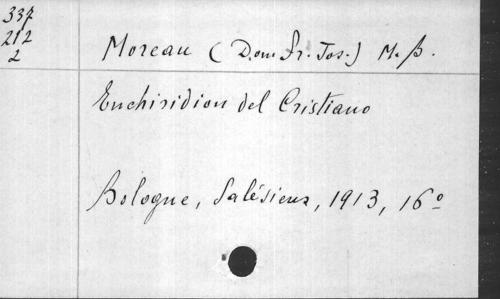 337
212
2
Moreau (Dom. Fr. Jos.) M. B.
Enchiridion del Cristiano
Bologne, Salésiens, 1913, 16º